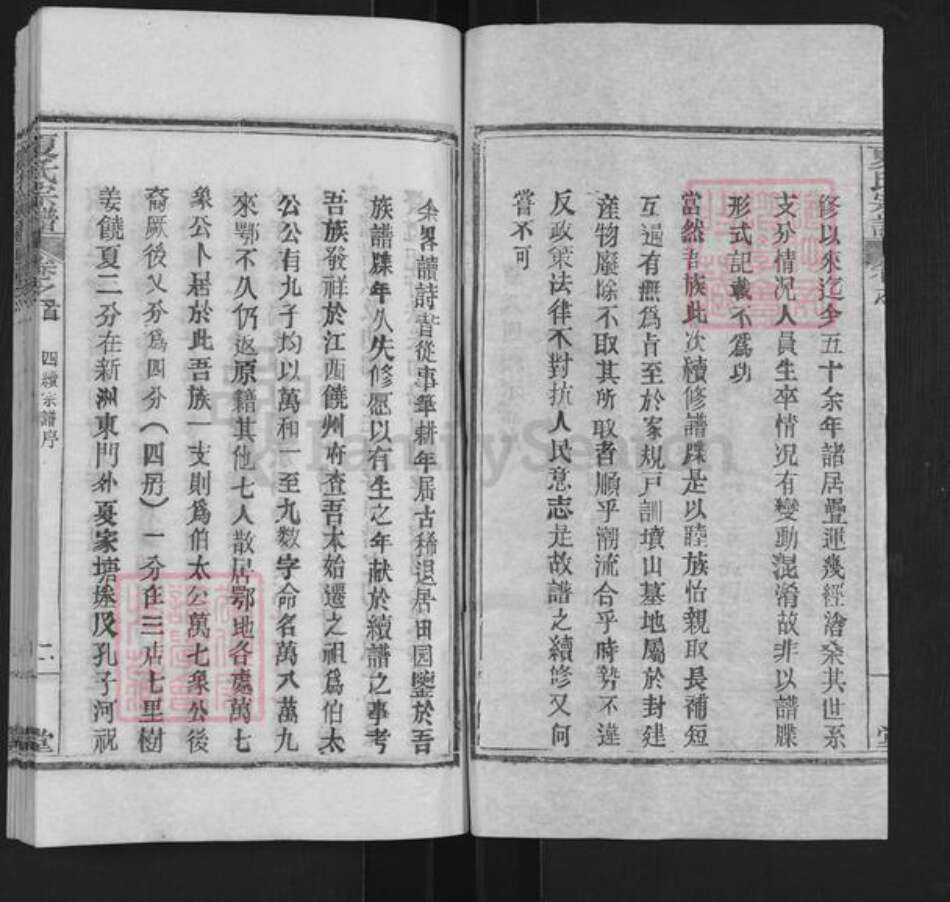 修以來迄今五十余年諸居疊運幾經滄桑其世系
支分情况人員生卒情况有變動混淆故非以譜牒
形式記載不爲功
當然吾族此次續修譜牒是以睦族怡親取長補短
互通有無爲旨至於家規戸訓墳山墓地屬於封建
産物廢除不取其所取者順乎潮流合乎時勢不違
反政策法律不對抗人民意志是故譜之續修又何
嘗不可
余畧讀詩書從事筆耕年届古稀退居田园鑒於吾
族譜牒年久失修愿以有生之年献於續譜之事考
吾族發祥於江西饒州府查吾本始遷之祖爲伯太
公公有九子均以萬和一至九数字命名萬八萬九
來鄂不久仍返原籍其他七人散居鄂地各處萬七
象公卜居於此吾族一支則爲伯太公萬七象公後
裔厥後又分爲四分(四房)一分在三店七里樹
姜饒夏二分在新洲東門外夏家塘垸及孔子河祝
夏氏宗譜
卷之首
四續宗譜序
二
堂
FamilySearch